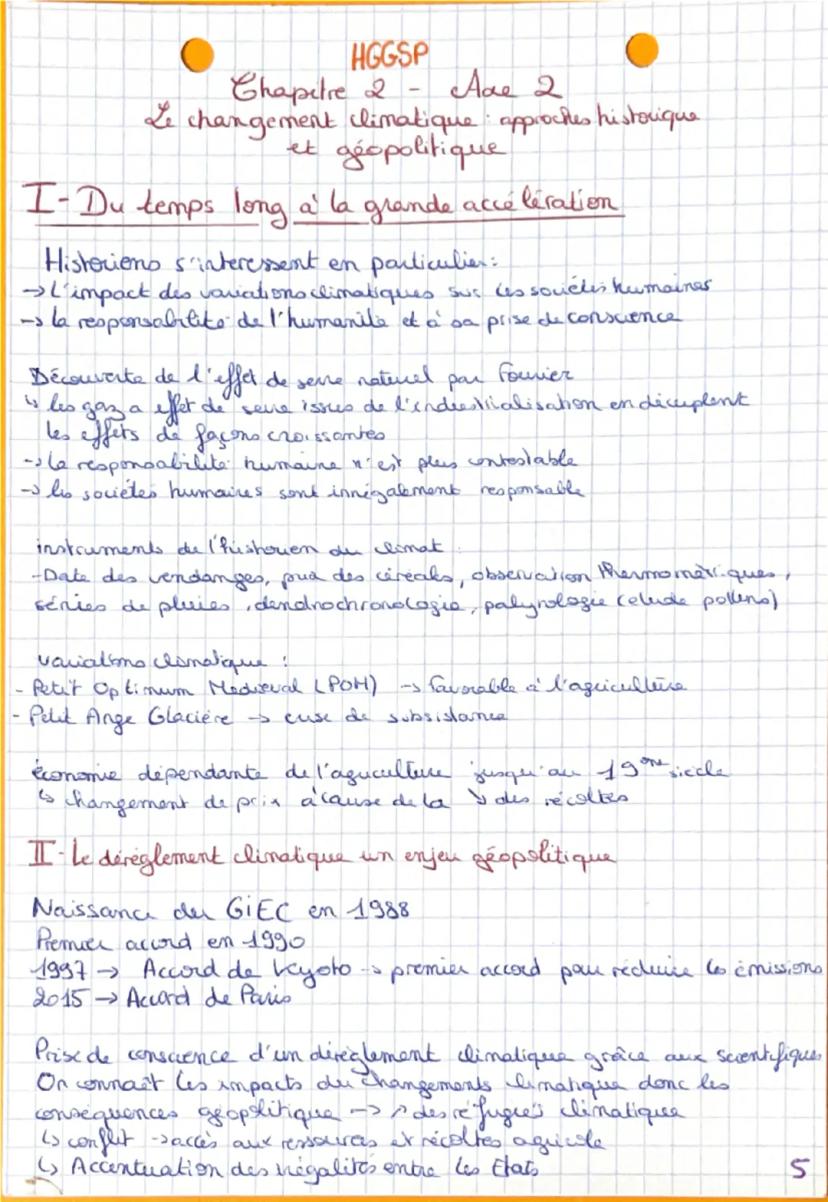 HGGSP
Chapitre 2 - Axe 2
Le changement climatique : approches historique
et géopolitique
I - Du temps long à la grande accélération
Historiens s'interessent en particulier :
→ L'impact des variations climatiques sur les sociétés humaines
→ la responsabilité de l'humanité et à sa prise de conscience
Découverte de l'effet de serre naturel par Fourier
↳ les gaz a effet de serre issus de l'industrialisation en décuplent
les effets de façons croissantes
→ la responsabilité humaine n'est plus contestable
→ les sociétés humaines sont innégalement responsable
instruments de l'historien du climat :
- Date des vendanges, prix des céréales, observation thermométriques,
séries de pluies, dendrochronologie, palynologie (etude pollens)
variations climatique :
- Petit Optimum Medieval (POM) → favorable à l'agriculture
- Petit Ange Glacière → crise de subsistance
économie dépendante de l'agriculture jusqu'au 19ème siecle
↳ changement de prix à cause de la ↘ des récoltes
II - Le déréglement climatique un enjeu géopolitique
Naissance du GIEC en 1988
Premier accord en 1990
1997 → Accord de Kyoto → premier accord pour réduire les émissions
2015 → Accord de Paris
Prise de conscience d'un déréglement climatique grâce aux scientifiques
On connaît les impacts du changements climatique donc les
conséquences géopolitique → ↗ des réfugiés climatiques
↳ conflit → accès aux ressources et récoltes agricole
↳ Accentuation des inégalités entre les Etats
5